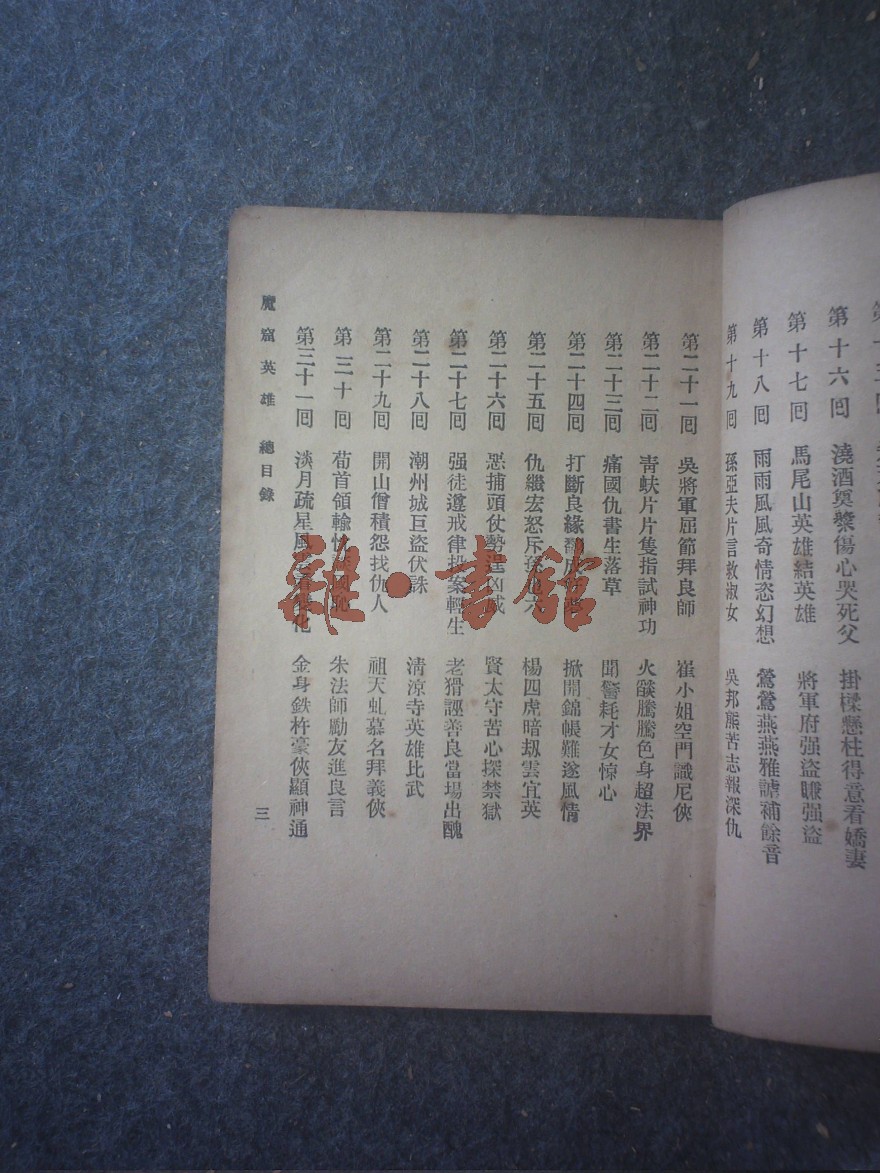 第十六囘　澆酒奠漿傷心哭死父　掛樑懸柱得意看嬌妻
第十七囘　馬尾山英雄結英雄　將軍府强盜賺强盜
第十八囘　雨雨風風奇情恣幻想　鶯鶯燕燕雅謔補餘音
第十九囘　孫亞夫片言救淑女　吳邦熊苦志報深仇
第二十一囘　吳將軍屈節拜良師　崔小姐空門識尼俠
第二十二囘　靑蚨片片隻指試神功　火燄騰騰色身超法界
第二十三囘　痛國仇書生落草　聞警耗才女惊心
第二十四囘　打斷良緣　掀開錦帳難遂風情
第二十五囘　仇繼宏怒斥孫　六　楊四虎暗刼雲宜英
第二十六囘　惡捕頭仗勢逞凶威　賢太守苦心探禁獄
第二十七囘　强徒遵戒律投案輕生　老猾誣善良當場出醜
第二十八囘　潮州城巨盜伏誅　淸涼寺英雄比武
第二十九囘　開山僧積怨找仇人　祖天虬慕名拜義俠
第三十囘　荀首領輸忱　國恥　朱法師勵友進良言
第三十一囘　淡月疏星風　化　金身鉄杵豪俠顯神通
魔窟英雄　總目錄
三
雜·書館